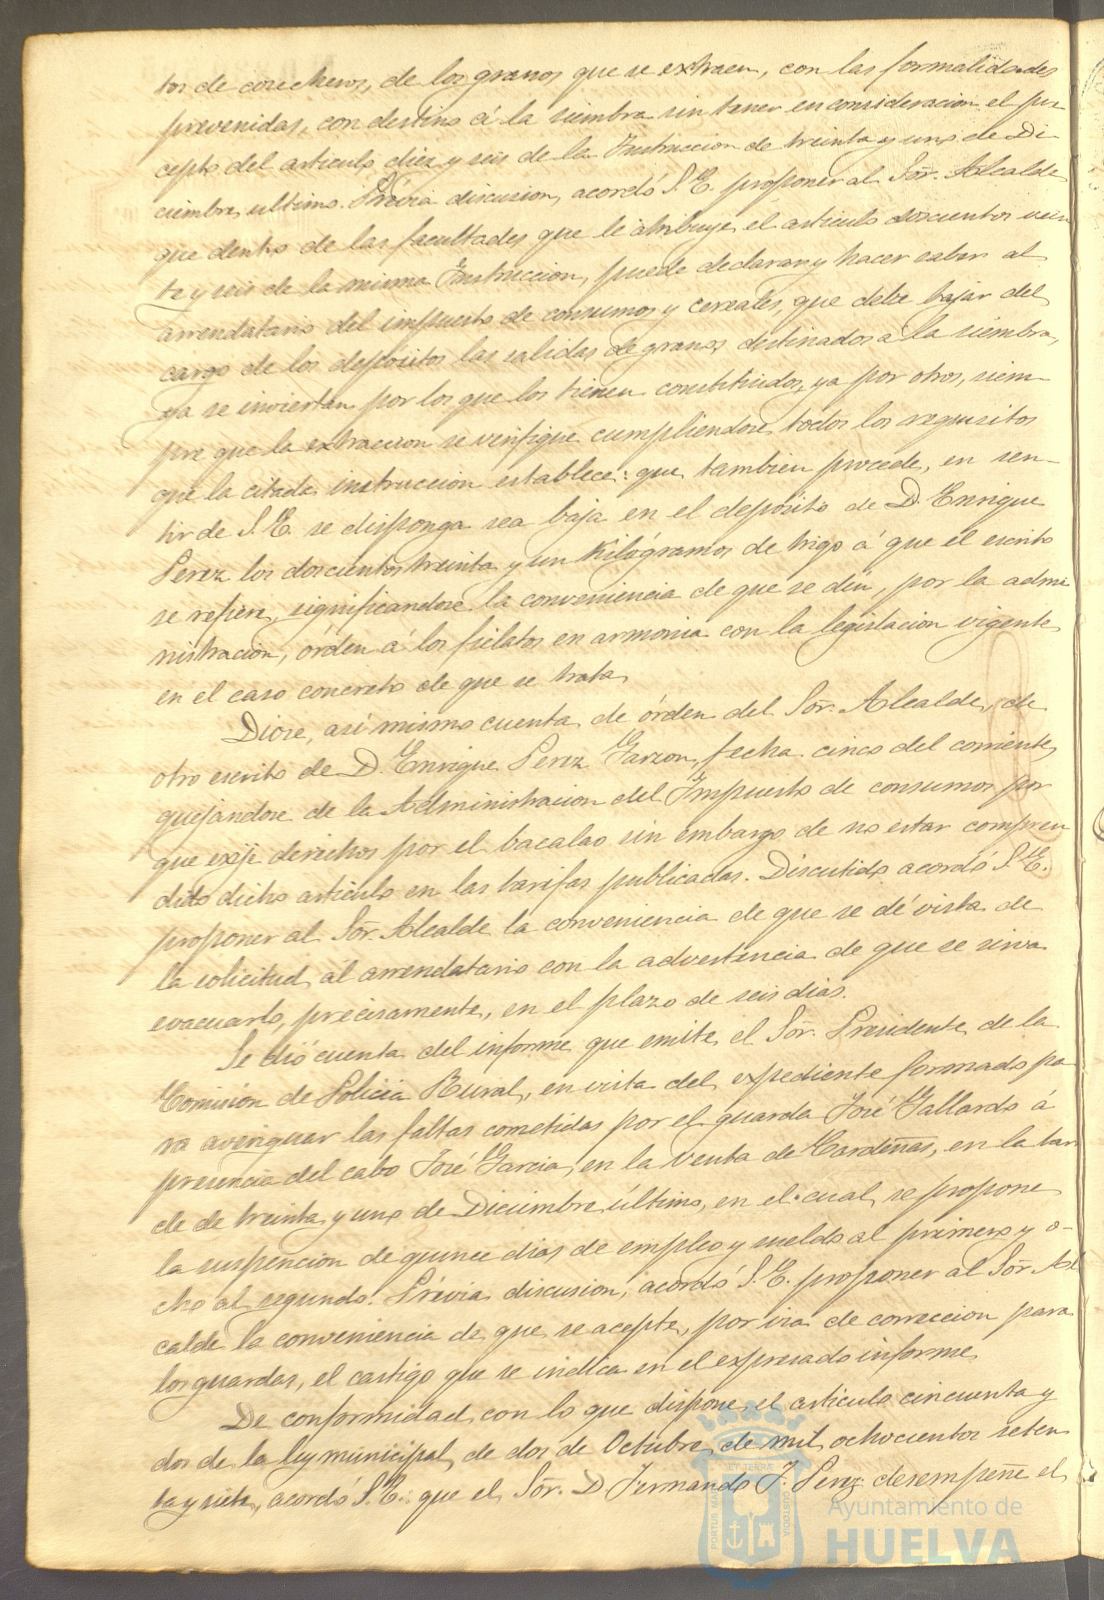 tos de cosecheros, de los granos que se extraen, con las formalidades
prevenidas, con destino á la siembra sin tener en consideracion el pre-
cepto del articulo diez y seis de la Instruccion de treinta y uno de Di
ciembre último. Prévia discusion, acordó S.E. proponer al Sor. Alcalde
que dentro de las facultades que le atribuye el articulo doscientos vein
te y seis de la misma Instruccion, puede declarar y hacer saber al
arrendatario del impuesto de consumos y cereales, que debe bajar del
cargo de los depósitos las salidas de granos destinados a la siembra,
ya se inviertan por los que los tienen constituidos, ya por otros, siem-
pre que la extraccion se verifique cumpliendose todos los requisitos
que la citada instruccion establece: que tambien procede, en sen-
tir de S.E. se disponga sea baja en el depósito de D. Enrique
Perez los doscientos treinta y un Kilógramos de trigo á que el escrito
se refiere, significandose la conveniencia de que se den, por la admi
nistración, órden á los fielatos en armonia con la legislacion vigente,
en el caso concreto de que se trata.
Diose, asi mismo cuenta de órden del Sor. Alcalde, de
otro escrito de D. Enrique Perez Garzon, fecha cinco del corriente,
quejandose de la Administracion del Impuesto de consumos por
que exije derechos por el bacalao sin embargo de no estar compren
dido dicho articulo en las tarifas publicadas. Discutido, acordó S.E.
proponer al Sor. Alcalde la conveniencia de que se dé vista de
la solicitud al arrendatario con la advertencia de que se sirva
evacuarlo, precisamente, en el plazo de seis dias.
Se dió cuenta del informe que emite el Sor. Presidente de la
Comisión de Policia Rural, en vista del expediente formado pa
ra averiguar las faltas cometidas por el guarda José Gallardo á
presencia del cabo José Garcia, en la venta de Cardeñas, en la tar
de de treinta y uno de Diciembre último, en el cual se propone
la suspencion de quince dias de empleo y sueldo al primero y o-
cho al segundo. Prévia discusion, acordó S.E. proponer al Sor. Al
calde la conveniencia de que se acepte, por via de correccion para
los guardas, el castigo que se indica en el expresado informe.
De conformidad con lo que dispone el articulo cincuenta y
dos de la ley municipal de dos de Octubre de mil ochocientos seten
ta y siete, acordó S.E. que el Sor. D Fernando J. Perez desempeñe el
PORTUS MARIS ET TERRAE CUSTODIA
Ayuntamiento de
HUELVA